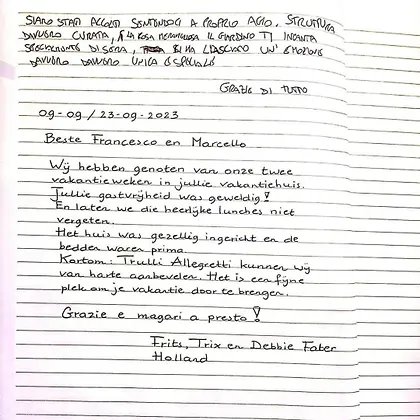 SIAMO STATI ACCOLTI SENTENDOCI A PROPRIO AGIO. STRUTTURA
DAVVERO CURATA, LA COSA MERAVIGLIOSA IL GIARDINO TI INCANTA
SPECIALMENTE DI SERA, CI HA LASCIATO UN' EMOZIONE
DAVVERO DAVVERO UNICA E SPECIALE
GRAZIE DI TUTTO
09-09 / 23-09-2023
Beste Francesco en Marcello
Wij hebben genoten van onze twee
vakantieweken in jullie vakantiehuis.
Jullie gastvrijheid was geweldig!
En laten we die heerlijke lunches niet
vergeten.
Het huis was gezellig ingericht en de
bedden waren prima.
Kortom: Trulli Allegretti kunnen wij
van harte aanbevelen. Het is een fijne
plek om je vakantie door te brengen.
Grazie e magari a presto!
Frits, Trix en Debbie Fater
Holland